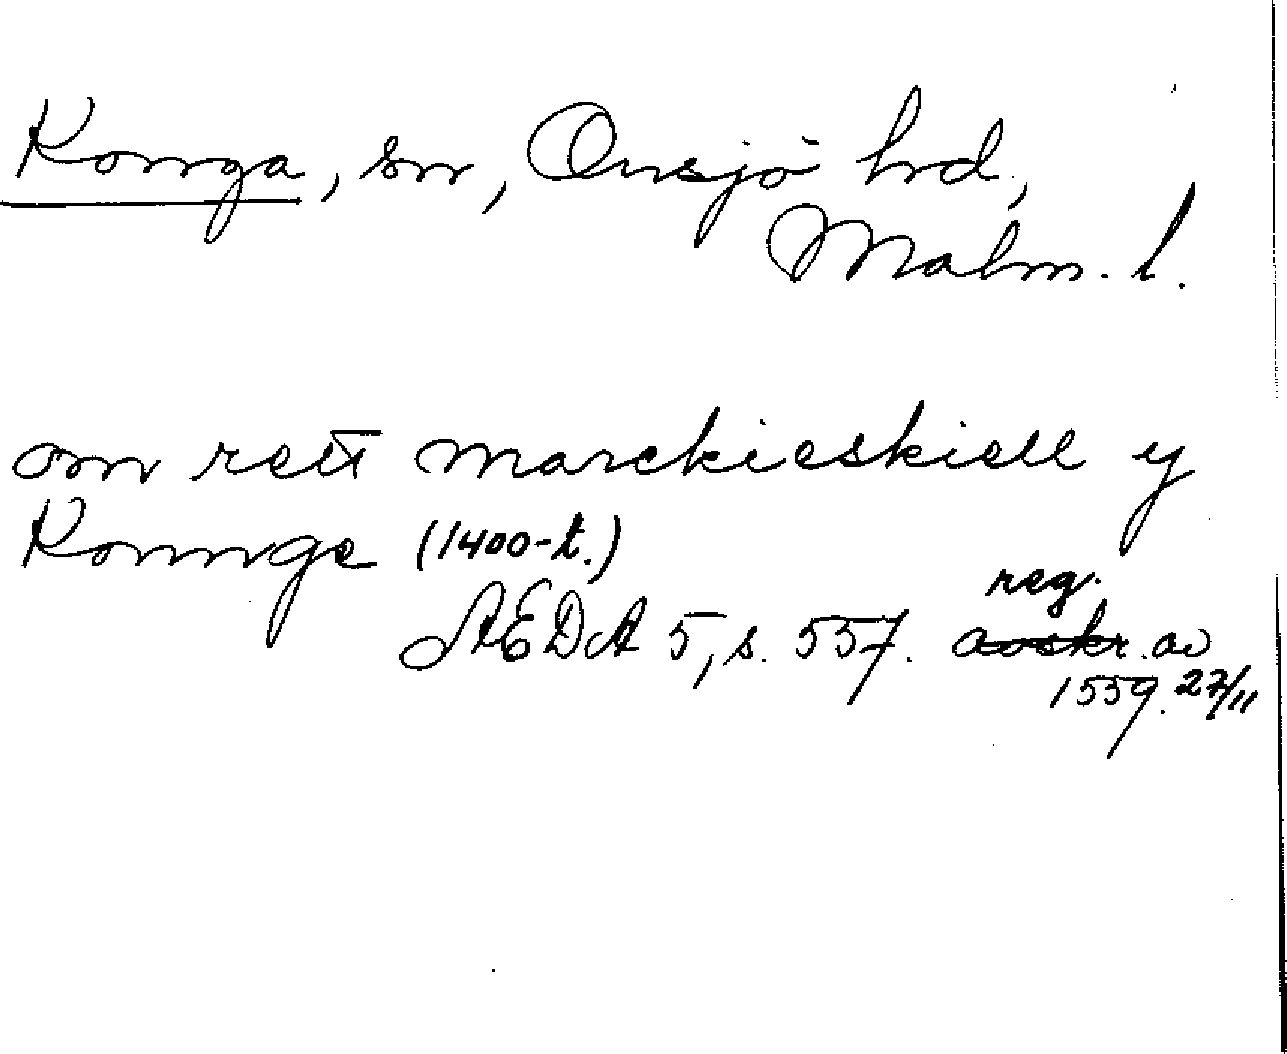 Konga, sn, Onsjö hrd,
Malm. l.
om rett marckieskiell y
Konnge (1400-t.)
ÆDA 5, s. 557. reg. avskr. av
1559. 27/11